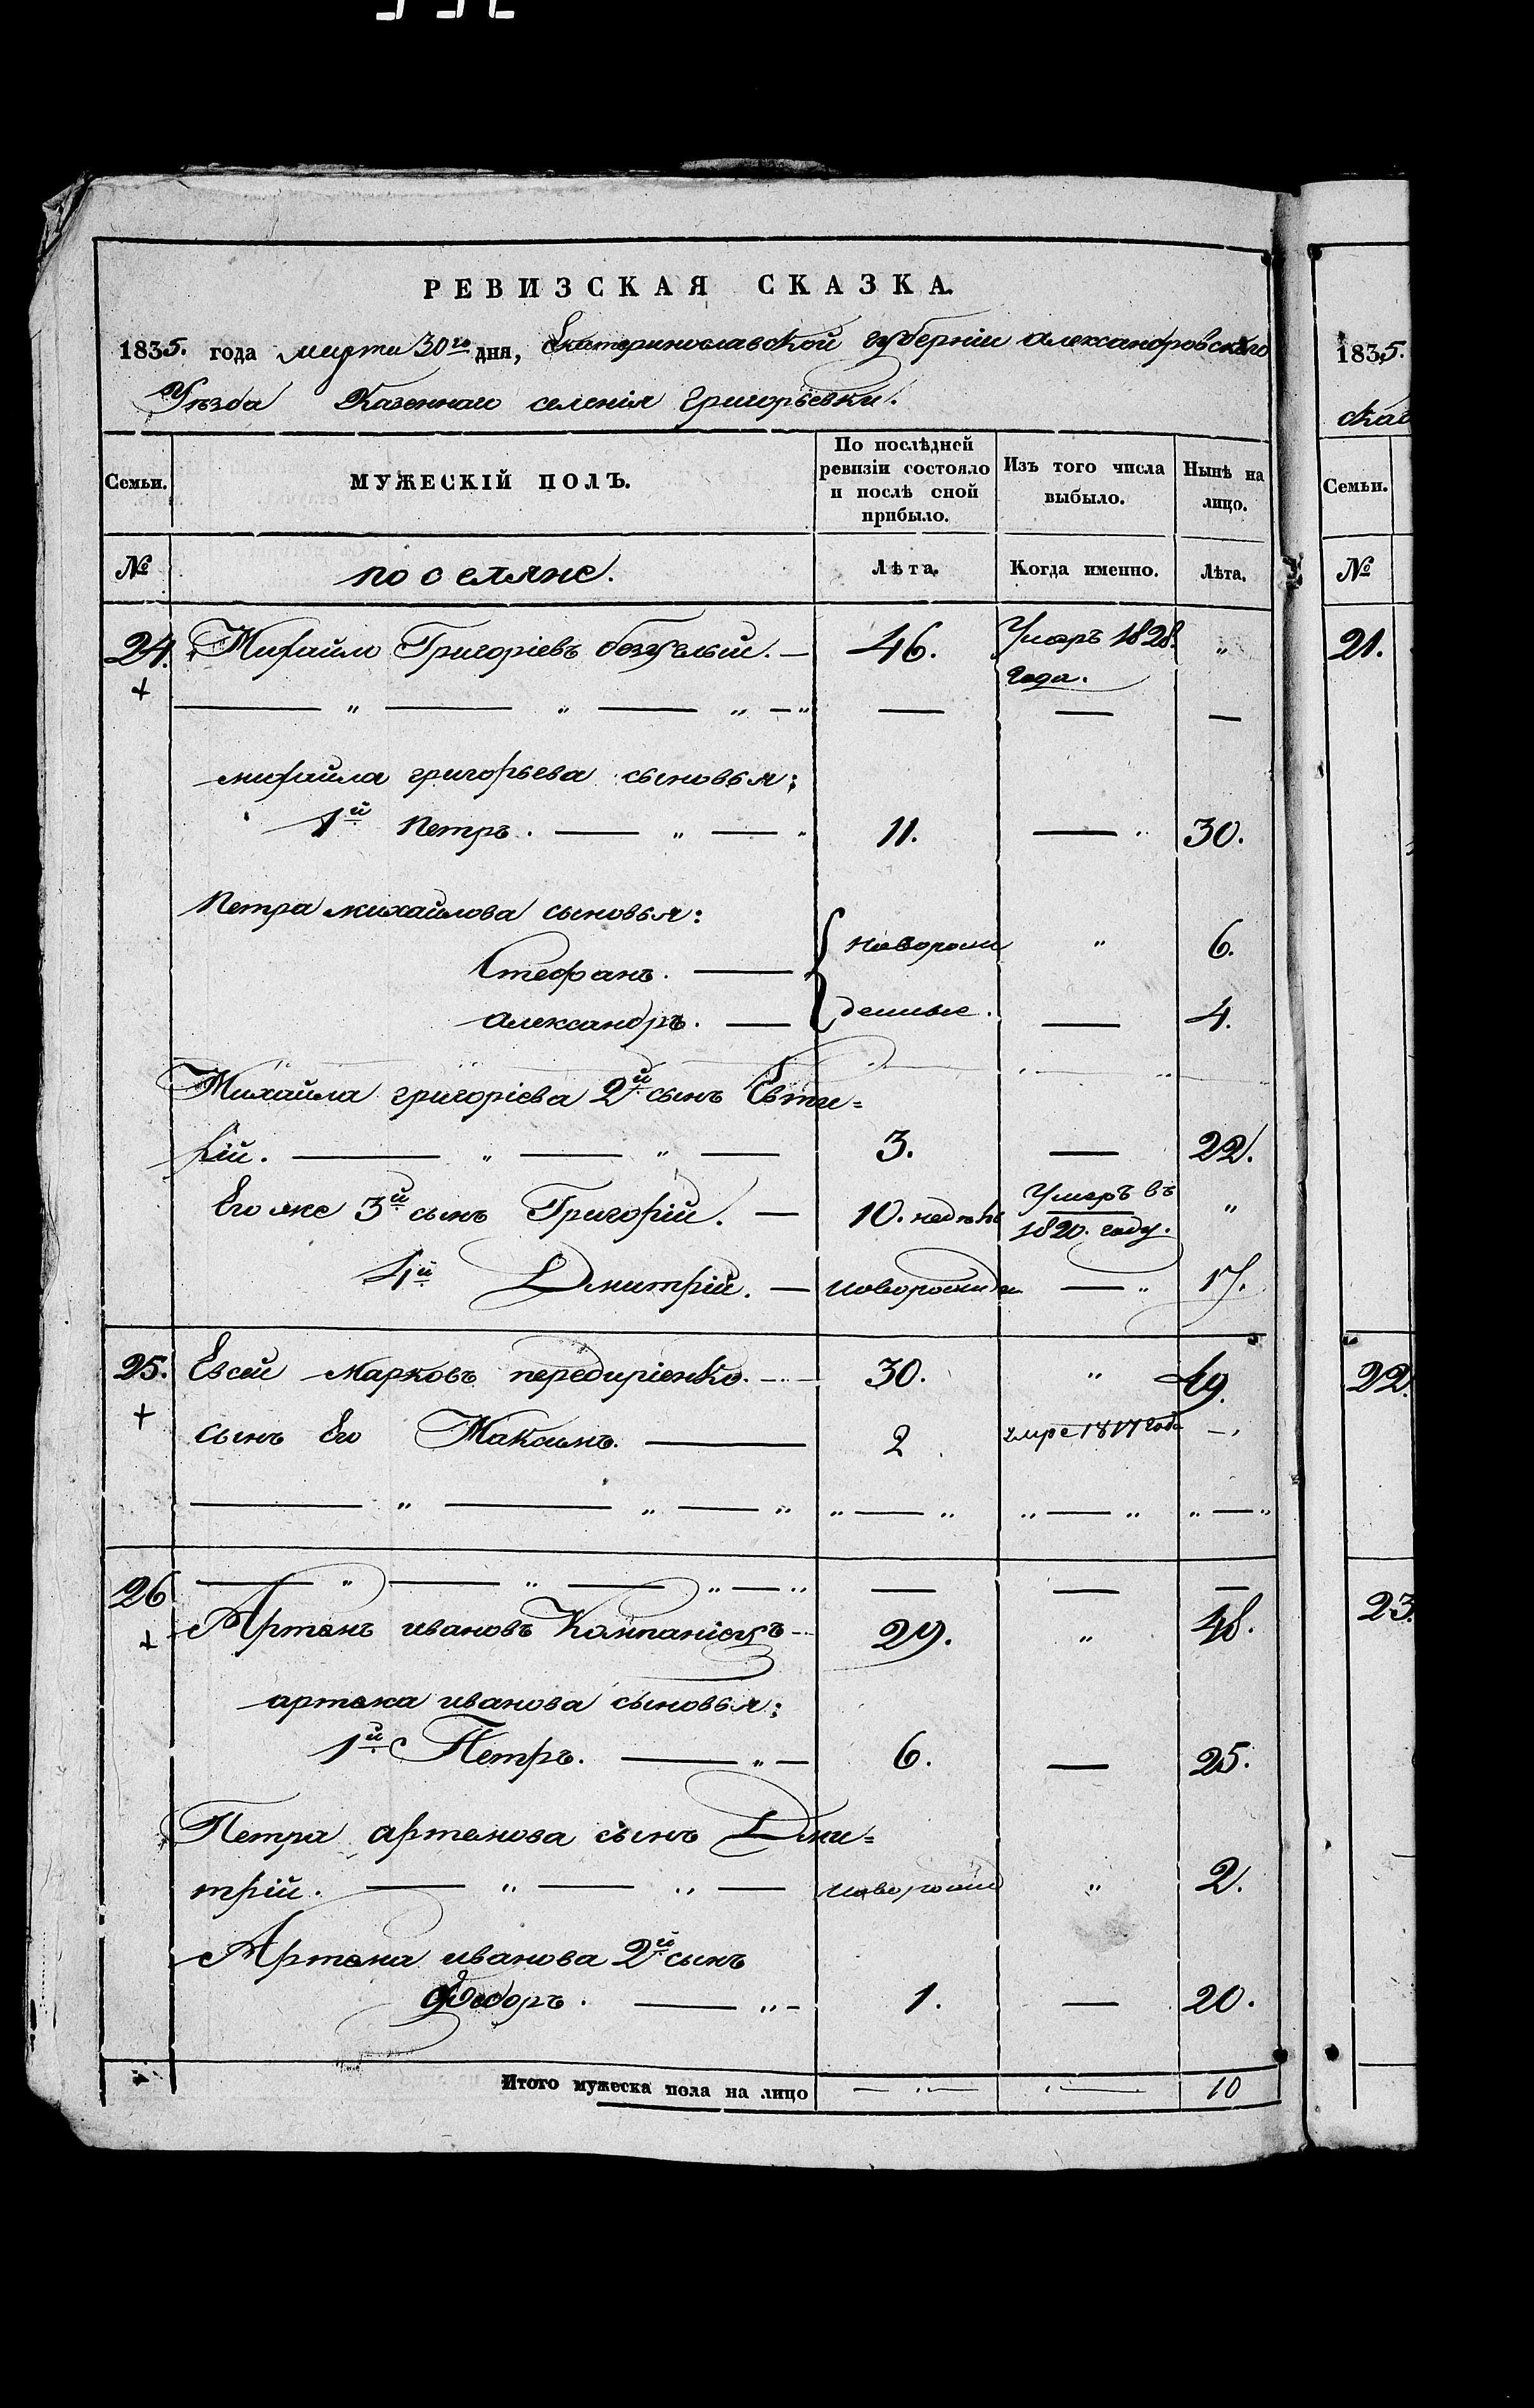 РЕВИЗСКАЯ СКАЗКА.
1835. года марта 30го дня, Екатеринославской губерніи Александровскаго
Уѣзда Казеннаго селенія Григорьевки.
Семьи. МУЖЕСКІЙ ПОЛЪ. По послѣдней ревизіи состояло и послѣ оной прибыло. Изъ того числа выбыло. Нынѣ на лицо.
№ поселяне. Лѣта. Когда именно. Лѣта.
24. Михайло Григоріевъ 46. Умеръ 1828. года. „
михайла григорьева сыновья:
1й Петръ. 11. 30.
Петра михайлова сыновья:
Стефанъ. новорож „ 6.
Александръ. денные. 4.
Михайла григоріева 2й сынъ Евти=
хій. 3. 22.
Его же 3й сынъ Григорій. 10. недѣль Умеръ въ 1820. году. „
4й Дмитрій. новорожден 17.
25. Евсей Марковъ передиріенко. 30. „ 49.
сынъ Его Максимъ. 2 умре 1817 года
26 Артемъ ивановъ 29. „ 48.
артема иванова сыновья:
1й Петръ. 6. 25.
Петра артемова сынъ Дми=
трій. новорожд „ 2.
Артема иванова 2й сынъ
Федоръ. 1. 20.
Итого мужеска пола на лицо 10
1835.
Семьи.
№
21.
22.
23.